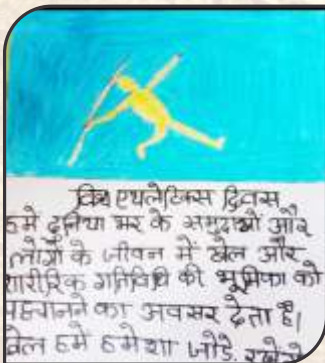 विश्व एथलेटिक्स दिवस
हमे दुनिया भर के समुदाओ और
लोगो के जीवन में खेल और
शारीरिक गतिविधि की भूमिका को
पहचानने का अवसर देता है।
खेल हमें हमेशा जोडे रखने